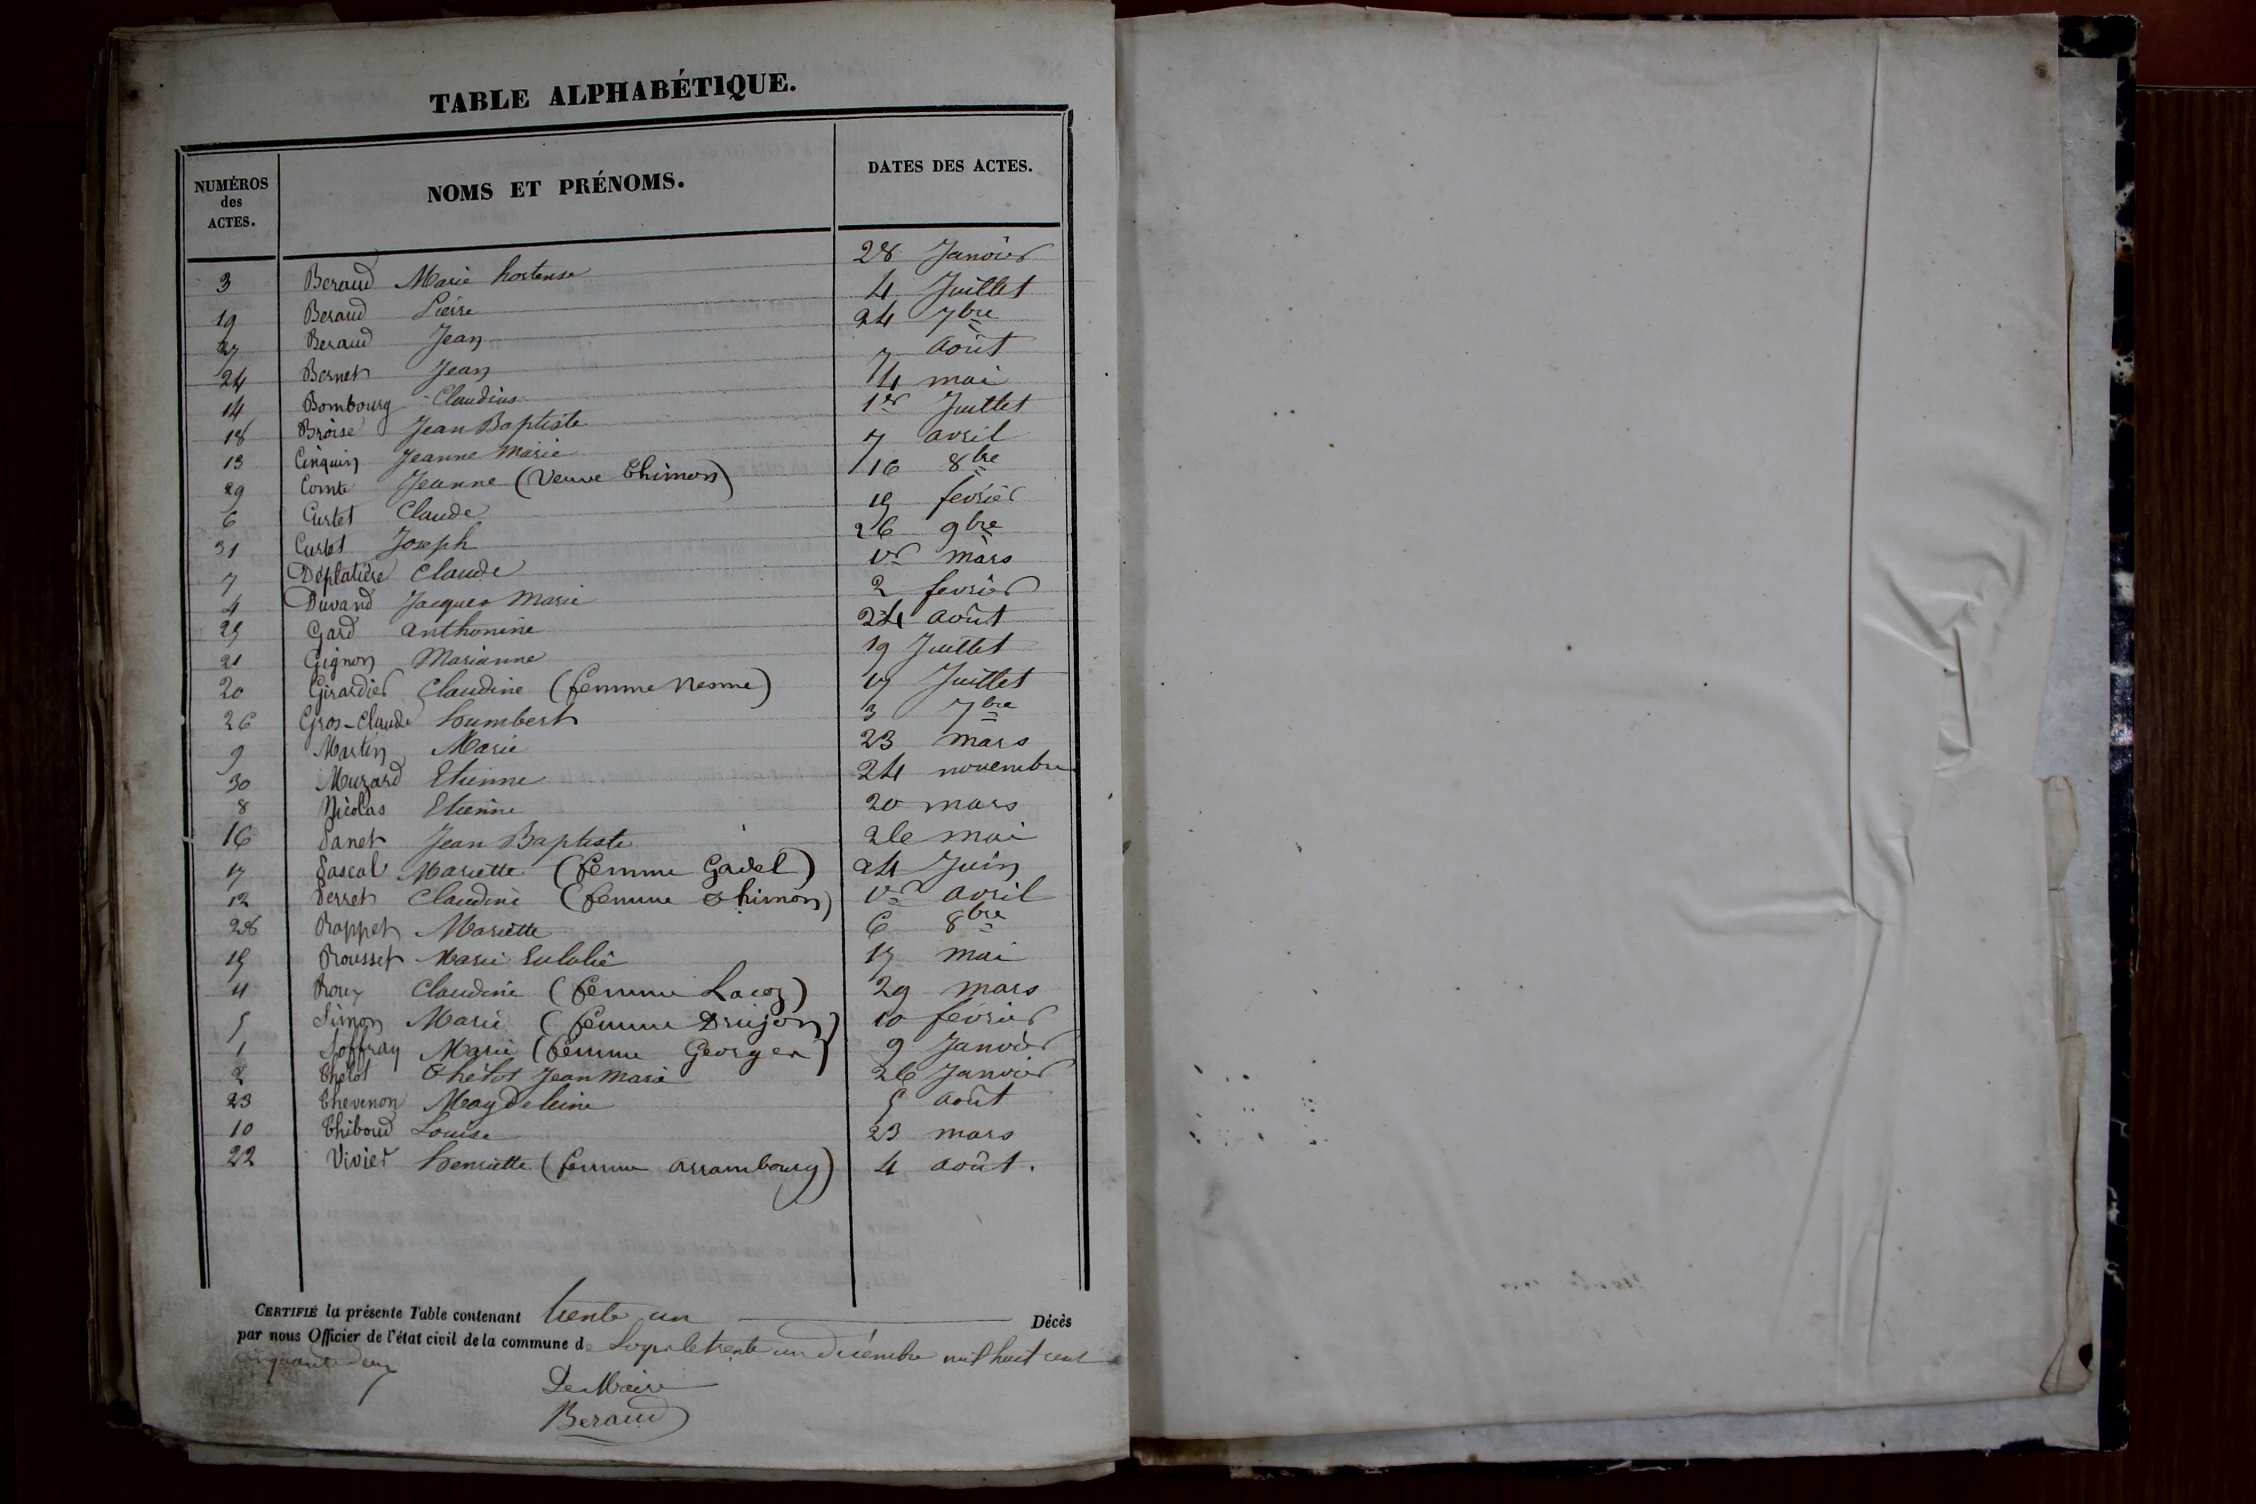 TABLE ALPHABÉTIQUE.
NUMÉROS des ACTES. NOMS ET PRÉNOMS. DATES DES ACTES.
3 Beraud Marie hortense 28 Janvier
19 Beraud Pierre 4 Juillet
27 Beraud Jean 24 7bre
24 Bernet Jean 7 août
14 Bombourg Claudius 14 mai
18 Broise Jean Baptiste 1er Juillet
13 Cinquin Jeanne Marie 7 avril
29 Comte Jeanne (Veuve Thimon) 16 8bre
6 Curtet Claude 15 fevrier
31 Curtet Joseph 26 9bre
7 Déplatière Claude 1er mars
4 Duvand Jacques Marie 2 fevrier
25 Gard anthonine 24 août
21 Gignon Marianne 19 Juillet
20 Girardier Claudine (femme Nesme) 17 Juillet
26 Gros-Claude humbert 3 7bre
9 Martin Marie 23 mars
30 Muzard Etienne 24 novembre
8 Nicolas Etienne 20 mars
16 Panet Jean Baptiste 26 mai
17 Pascal Mariette (femme Gadel) 24 Juin
12 Perret Claudine (femme Thimon) 1er avril
28 Rappet Mariette 6 8bre
15 Rousset Marie Eulalie 17 mai
11 Roux Claudine (femme Lacoz) 29 mars
5 Simon Marie (femme Drujon) 10 février
1 Soffray Marie (femme Georges) 9 Janvier
2 Thetot Thétot Jean Marie 26 Janvier
23 Thevenon Magdeleine 5 août
10 Thiboud Louise 23 mars
22 Vivier henriette (femme arrambourg) 4 août.
CERTIFIÉ la présente Table contenant trente un Décès
par nous Officier de l'état civil de la commune de le trente un décembre mil huit cent
cinquante deux
Le Maire
Beraud